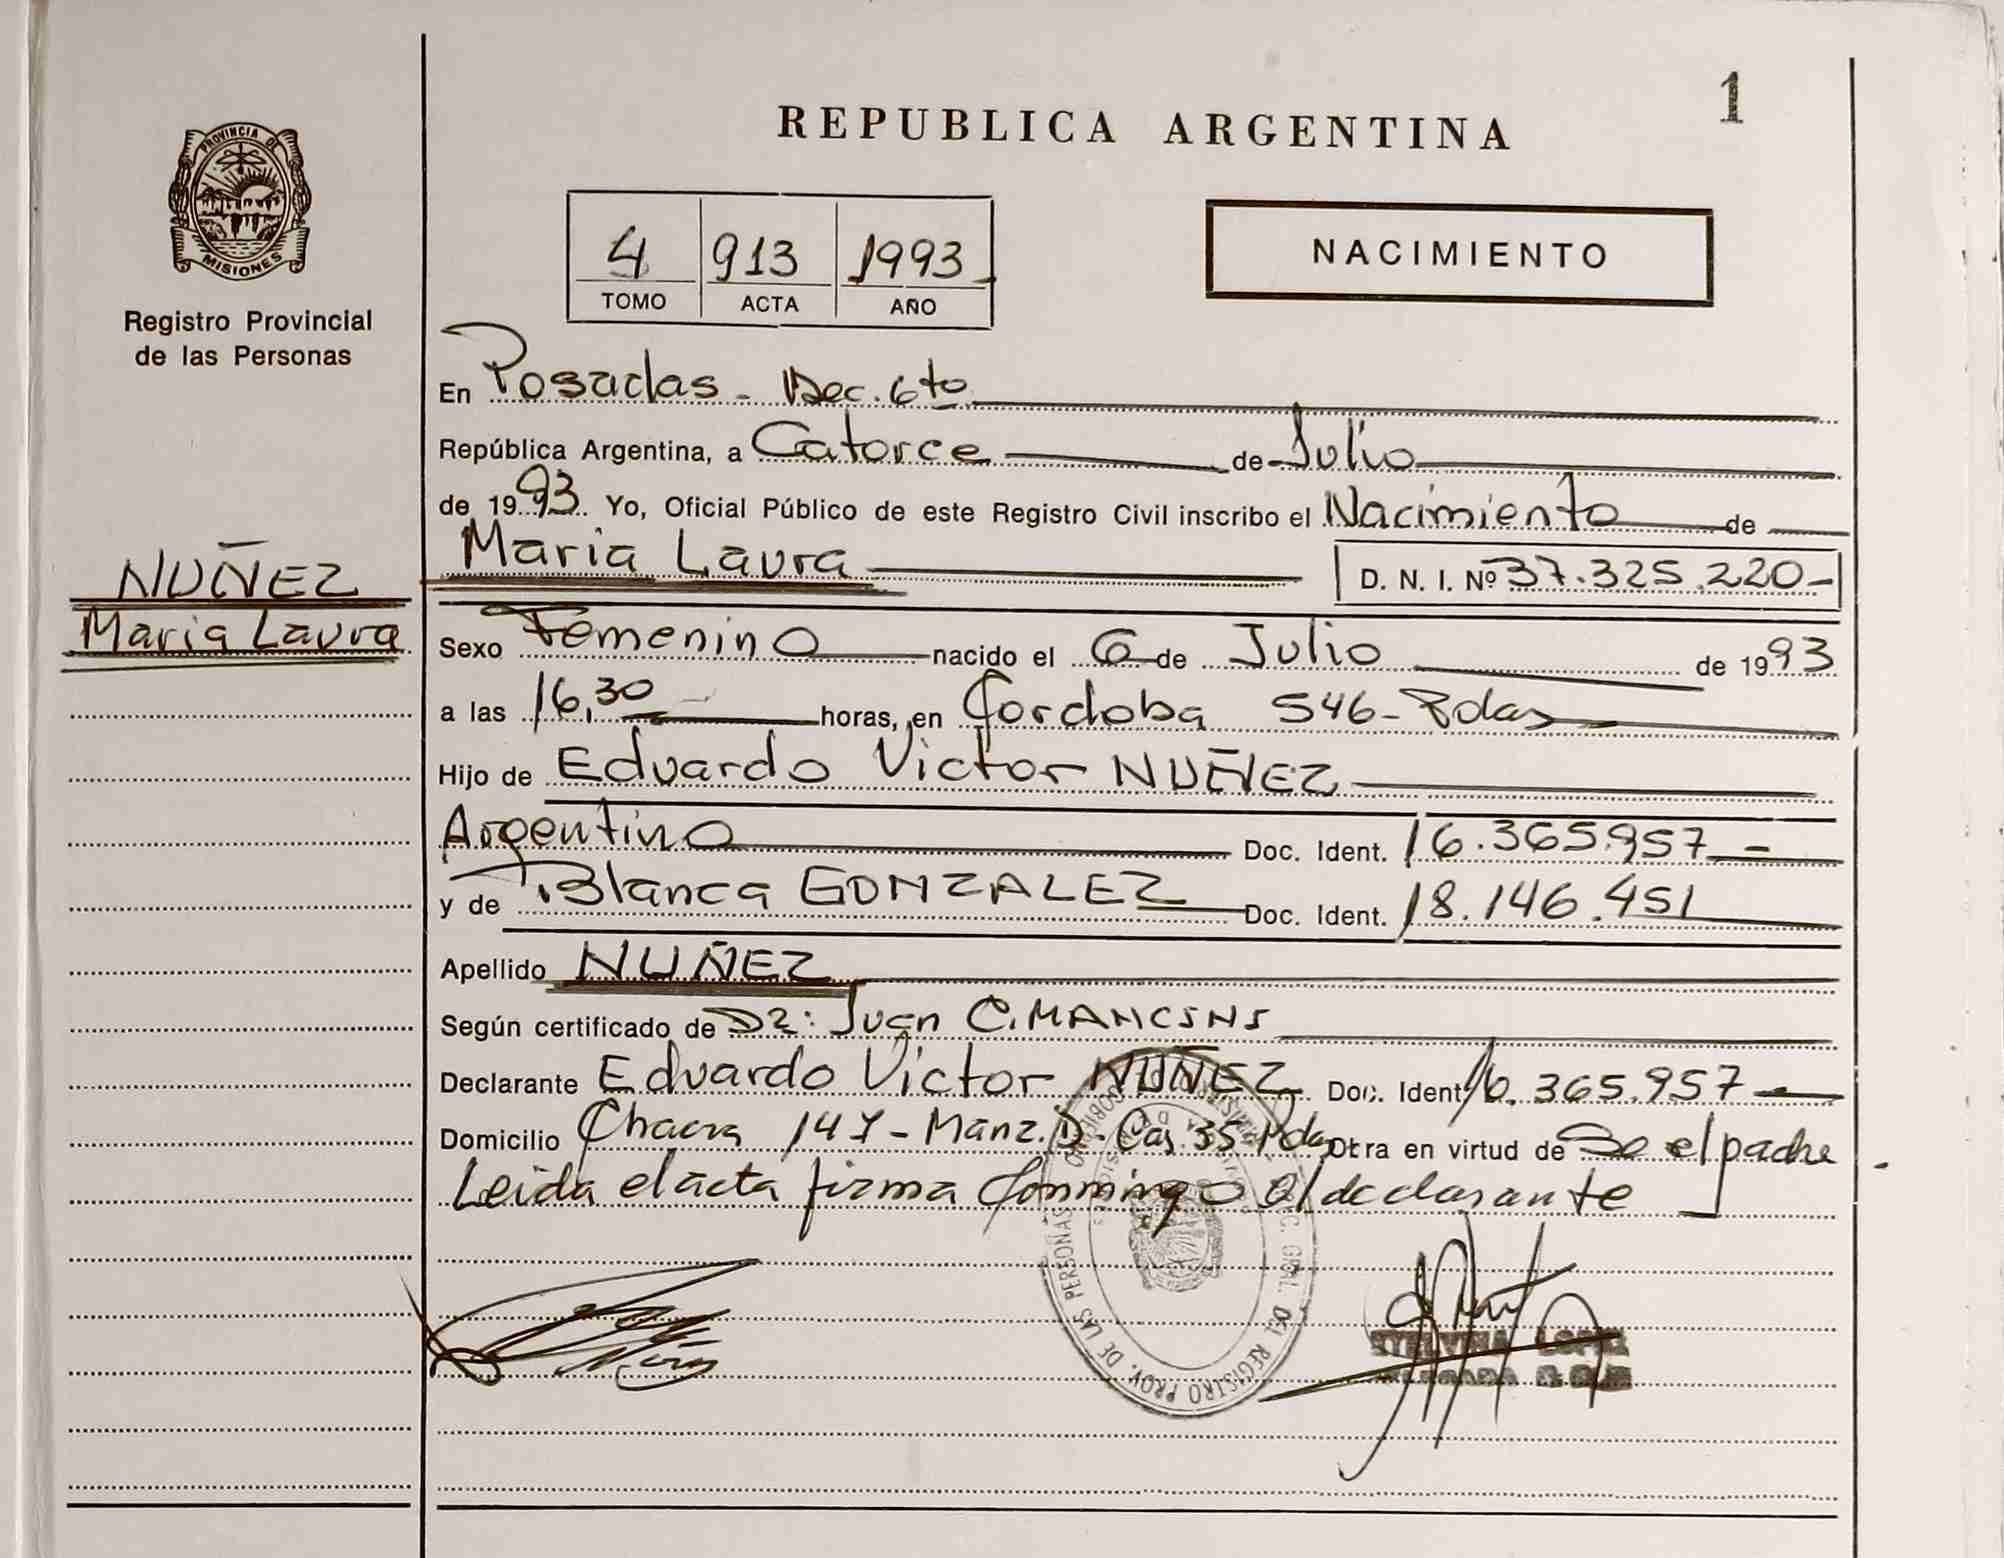 1
REPUBLICA ARGENTINA
PROVINCIA DE
MISIONES
Registro Provincial
de las Personas
4 913 1993
TOMO ACTA AÑO
NACIMIENTO
En Posadas - Sec. 6to
República Argentina, a Catorce de Julio
de 1993. Yo, Oficial Público de este Registro Civil inscribo el Nacimiento de
Maria Laura D. N. I. Nº 37.325.220-
NUÑEZ
Maria Laura
Sexo Femenino nacido el 6 de Julio de 1993
a las 16,30 horas, en Cordoba 546 - Pdas
Hijo de Eduardo Victor NUÑEZ
Argentino Doc. Ident. 16.365.957-
y de Blanca GONZALEZ Doc. Ident. 18.146.451
Apellido NUÑEZ
Según certificado de Dr: Juan C. MANCINI
Declarante Eduardo Victor NUÑEZ Doc. Ident. 16.365.957-
Domicilio Chacra 147 - Manz. D - Cas. 35 - Pdas Otra en virtud de Se el padre
Leida el acta firma conmigo el declarante
GRAL. DEL REGISTRO PROV. DE LAS PERSONAS
LOPEZ